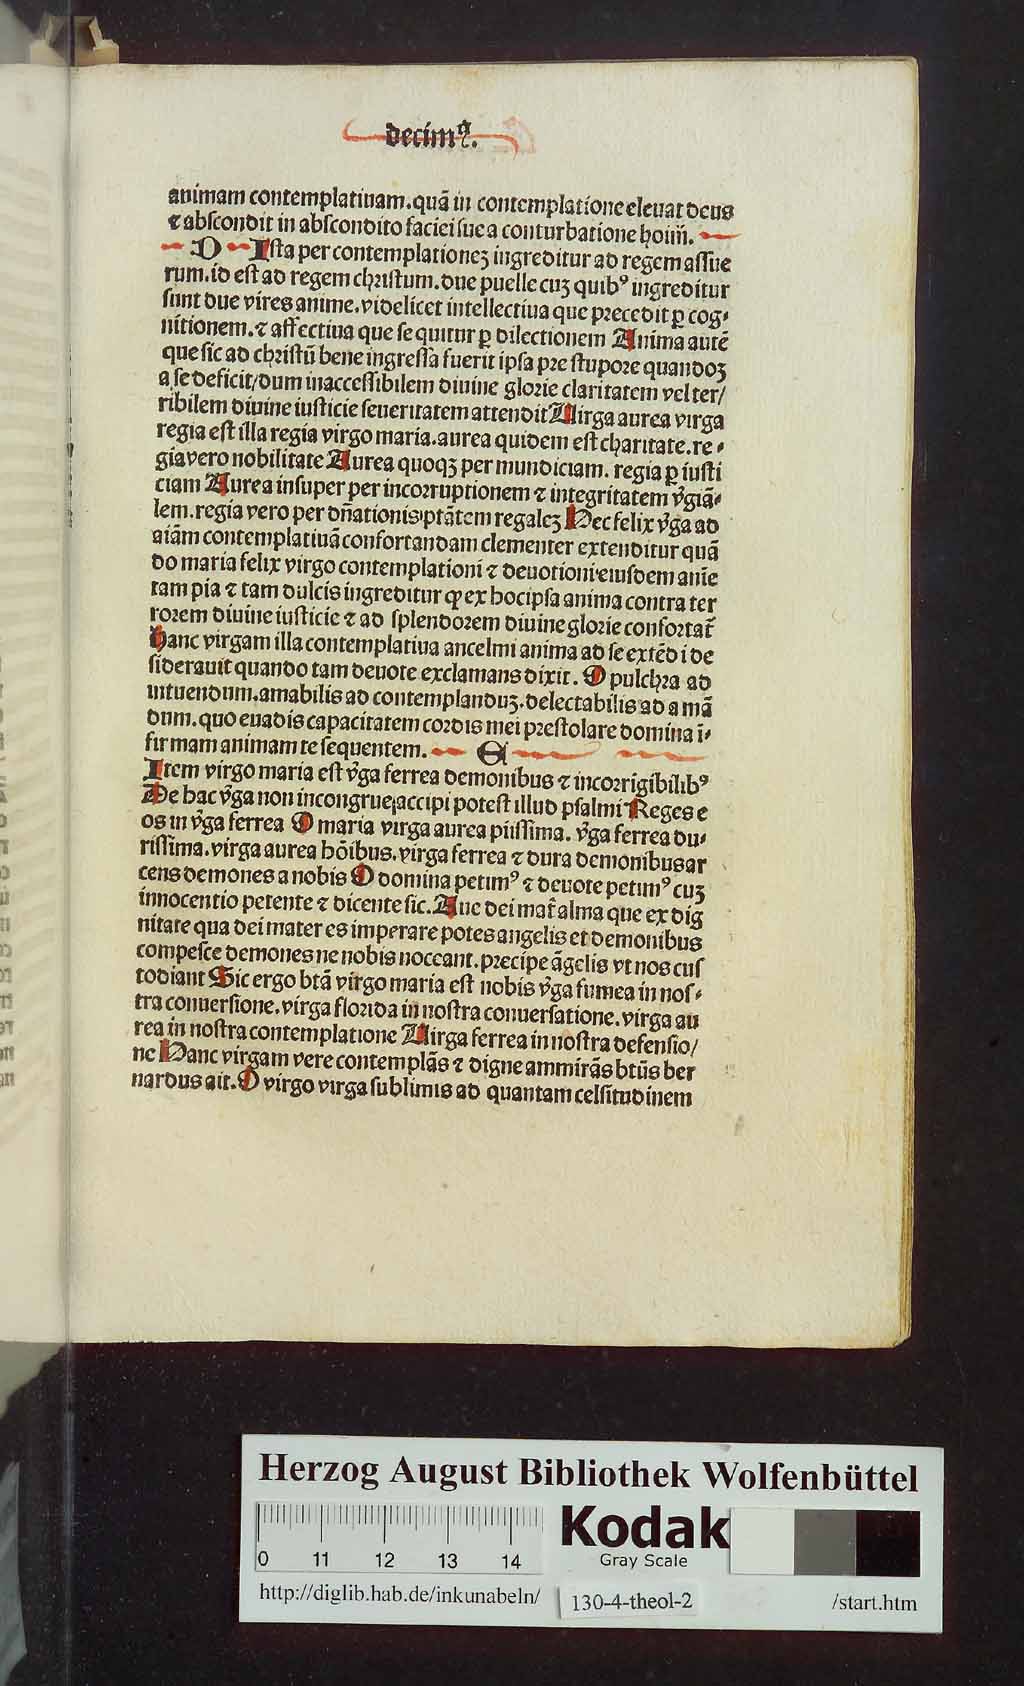 decimꝰ.
animam contemplatiuam. quā in contemplatione eleuat deus
⁊ abscondit in abscondito faciei sue a conturbatione hoim̄.
D Ista per contemplationeꝫ ingreditur ad regem assue
rum. id est ad regem christum. due puelle cuꝫ quibꝰ ingreditur
sunt due vires anime. videlicet intellectiua que precedit ꝑ cog-
nitionem. ⁊ affectiua que sequitur ꝑ dilectionem Anima autē
que sic ad christū bene ingressa fuerit ipsa pre stupore quandoꝫ
a se deficit/ dum inaccessibilem diuine glorie claritatem vel ter/
ribilem diuine iusticie seueritatem attendit Uirga aurea virga
regia est illa regia virgo maria. aurea quidem est charitate. re-
gia vero nobilitate Aurea quoqꝫ per mundiciam. regia ꝑ iusti
ciam Aurea insuper per incorruptionem ⁊ integritatem v̓giā-
lem. regia vero per dn̄ationis ptātem regaleꝫ Hec felix v̓ga ad
aiām contemplatiuā confortandam clementer extenditur quā
do maria felix virgo contemplationi ⁊ deuotioni eiusdem anīe
tam pia ⁊ tam dulcis ingreditur ꝙ ex hoc ipsa anima contra ter
rorem diuine iusticie ⁊ ad splendorem diuine glorie confortat̄
Hanc virgam illa contemplatiua ancelmi anima ad se extēdi de
siderauit quando tam deuote exclamans dixit. O pulchra ad
intuendum. amabilis ad contemplanduꝫ. delectabilis ad amā
dum. quo euadis capacitatem cordis mei prestolare domina ī-
firmam animam te sequentem. E
Item virgo maria est v̓ga ferrea demonibus ⁊ incorrigibilibꝰ
De hac v̓ga non incongrue accipi potest illud psalmi Reges e
os in v̓ga ferrea O maria virga aurea piissima. v̓ga ferrea du-
rissima. virga aurea hōibus. virga ferrea ⁊ dura demonibus ar
cens demones a nobis O domina petimꝰ ⁊ deuote petimꝰ cuꝫ
innocentio petente ⁊ dicente sic. Aue dei mat̄ alma que ex dig
nitate qua dei mater es imperare potes angelis et demonibus
compesce demones ne nobis noceant. precipe āgelis vt nos cus
todiant Sic ergo btā virgo maria est nobis v̓ga fumea in nos-
tra conuersione. virga florida in nostra conuersatione. virga au
rea in nostra contemplatione Uirga ferrea in nostra defensio/
ne Hanc virgam vere contemplās ⁊ digne ammirās btūs ber
nardus ait. O virgo virga sublimis ad quantam celsitudinem
Herzog August Bibliothek Wolfenbüttel
0 11 12 13 14
Kodak
Gray Scale
http://diglib.hab.de/inkunabeln/ 130-4-theol-2 /start.htm